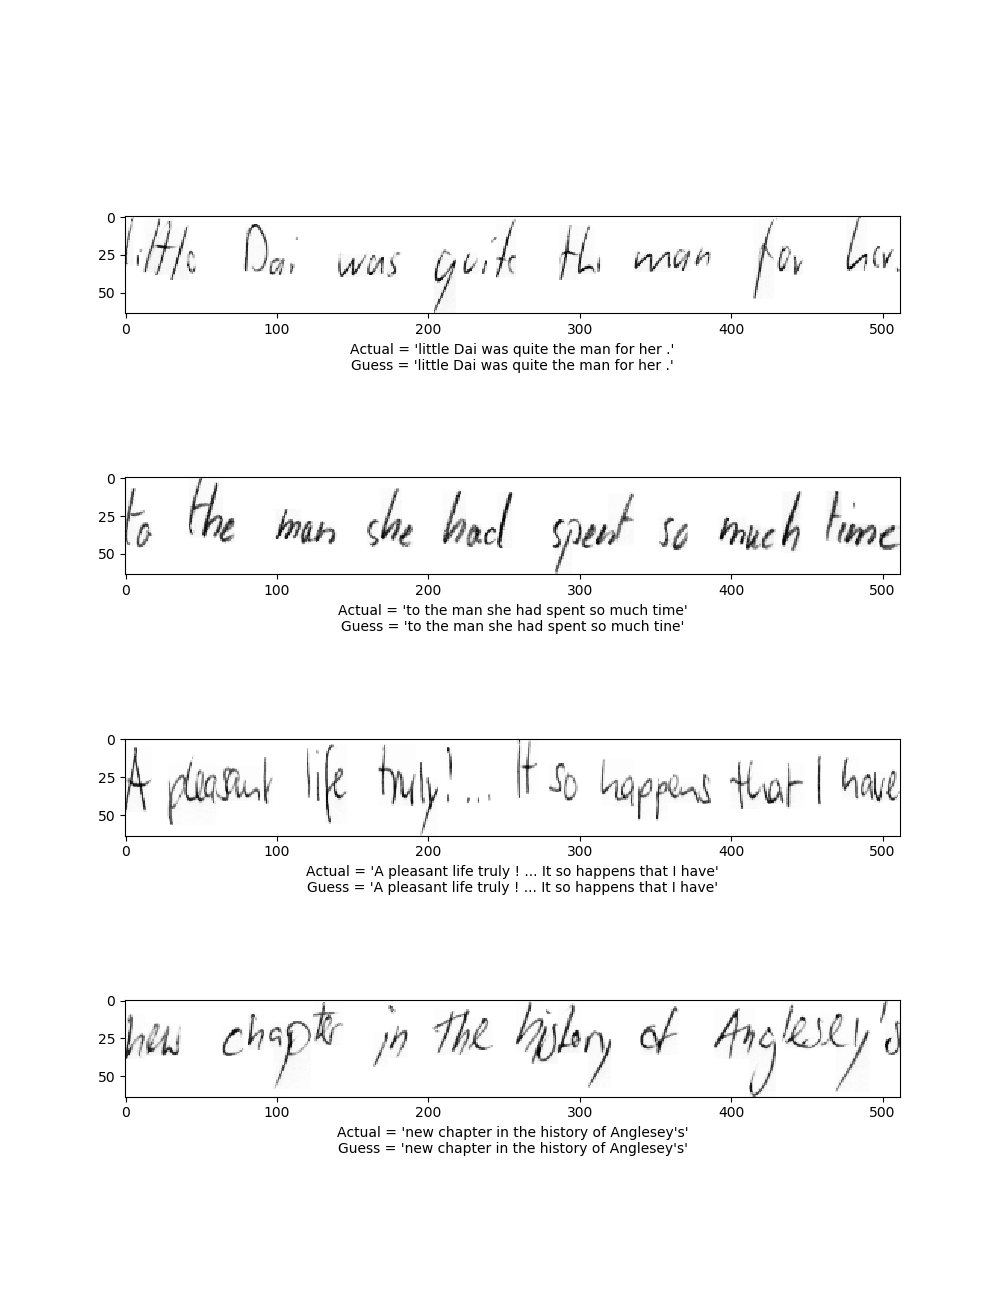 0
25
50
little Dai was quite the man for her.
0 100 200 300 400 500
Actual = 'little Dai was quite the man for her .'
Guess = 'little Dai was quite the man for her .'
0
25
50
to the man she had spent so much time
0 100 200 300 400 500
Actual = 'to the man she had spent so much time'
Guess = 'to the man she had spent so much tine'
0
25
50
A pleasant life truly!... It so happens that I have
0 100 200 300 400 500
Actual = 'A pleasant life truly ! ... It so happens that I have'
Guess = 'A pleasant life truly ! ... It so happens that I have'
0
25
50
new chapter in the history of Anglesey's
0 100 200 300 400 500
Actual = 'new chapter in the history of Anglesey's'
Guess = 'new chapter in the history of Anglesey's'